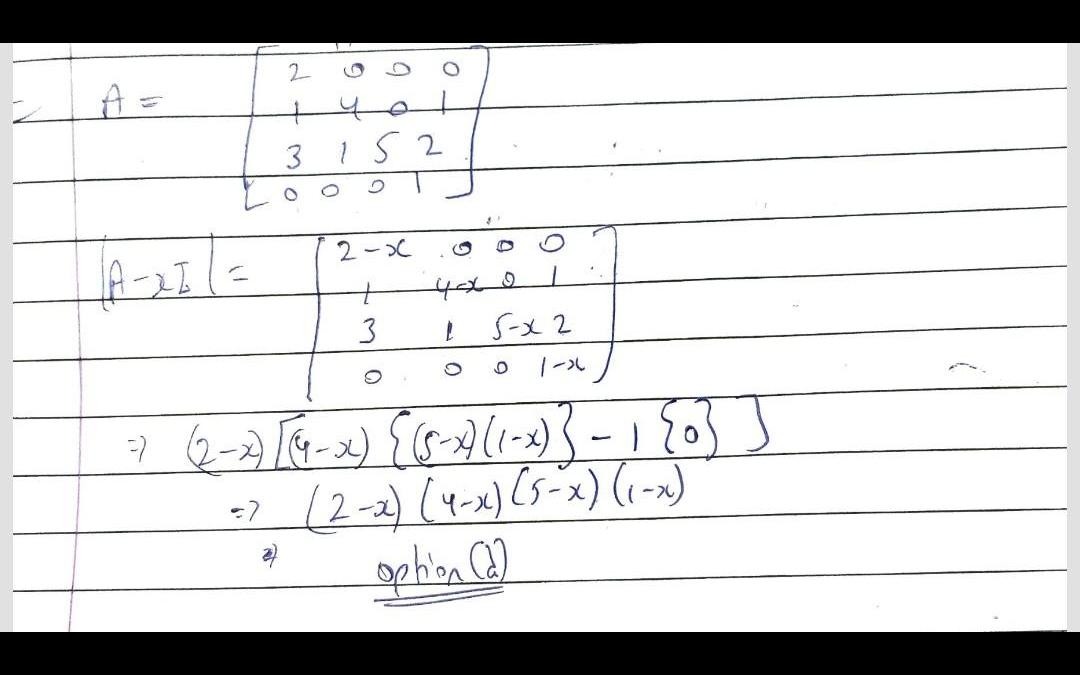 A = [ 2 0 0 0
1 4 0 1
3 1 5 2
0 0 0 1 ]
|A-xI| = [ 2-x 0 0 0
1 4-x 0 1
3 1 5-x 2
0 0 0 1-x ]
=> (2-x) [(4-x) {(5-x)(1-x)} - 1 {0} ]
=> (2-x) (4-x) (5-x) (1-x)
=> option (d)